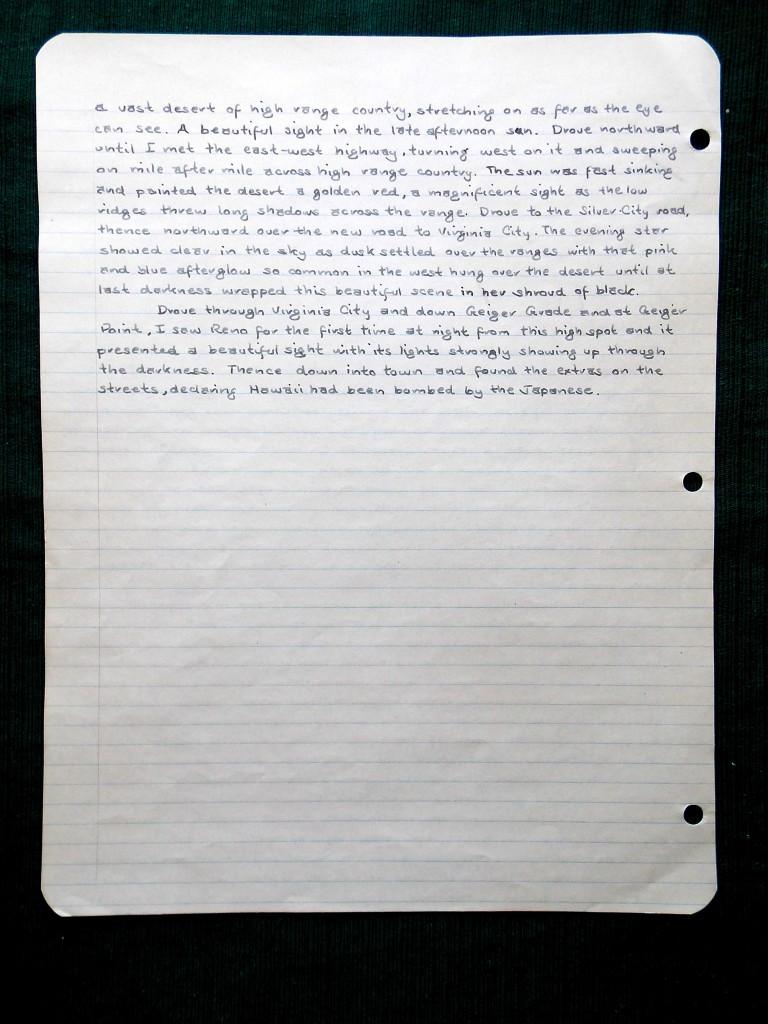 a vast desert of high range country, stretching on as far as the eye
can see. A beautiful sight in the late afternoon sun. Drove northward
until I met the east-west highway, turning west on it and sweeping
on mile after mile across high range country. The sun was fast sinking
and painted the desert a golden red, a magnificent sight as the low
ridges threw long shadows across the range. Drove to the Silver City road,
thence northward over the new road to Virginia City. The evening star
showed clear in the sky as dusk settled over the ranges with that pink
and blue afterglow so common in the west hung over the desert until at
last darkness wrapped this beautiful scene in her shroud of black.
Drove through Virginia City and down Geiger Grade and at Geiger
Point, I saw Reno for the first time at night from this high spot and it
presented a beautiful sight with its lights strongly showing up through
the darkness. Thence down into town and found the extras on the
streets, declaring Hawaii had been bombed by the Japanese.